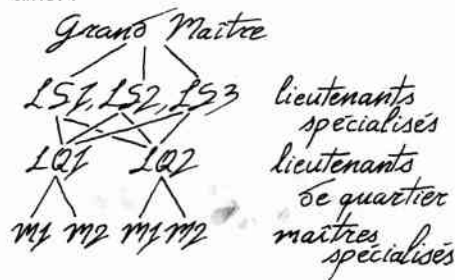 Grand Maître
LS1, LS2, LS3 lieutenants
spécialisés
LQ1 LQ2 lieutenants
de quartier
m1 m2 m1 m2 maîtres
spécialisés